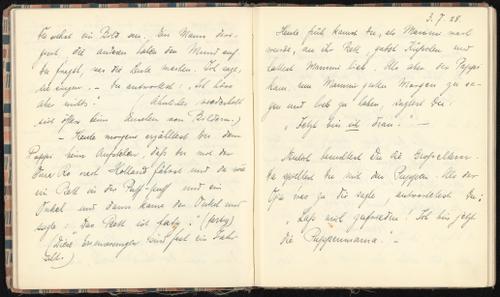 Du siehst ein Bild an. Ein Mann diri-
giert, die anderen haben den Mund auf.
Du fragst, was die Leute machen. Ich sage,
sie singen. – Du antwortest: "Ich höre
aber nichts!" (Ähnliches wiederholt
sich öfters beim Ansehen von Bildern.)
– Heute morgens erzähltest Du dem
Pappi beim Anziehen, daß Du mit der
Oma nach Holland fährst und da wäre
ein Bett in der Puff-puff und ein
Onkel und dann käme der Onkel und
sagte: "Das Bett ist fertig." (fertig)
(Diese Erinnerungen sind fast ein Jahr
alt.)
3. 7. 28.
Heute früh kamst Du, als Mammi wach
wurde, an ihr Bett, gabst Küßchen und
hattest Mammi lieb. Als aber der Pappi
kam, um Mammi guten Morgen zu sa-
gen und lieb zu haben, sagtest Du:
"Jetzt bin ich dran!" –
Neulich besuchtest Du die Großeltern.
Du spieltest mit den Puppen. Als der
Opa was zu Dir sagte, antwortetest Du:
"Laß mich zufrieden! Ich bin jetzt
die Puppenmama." –